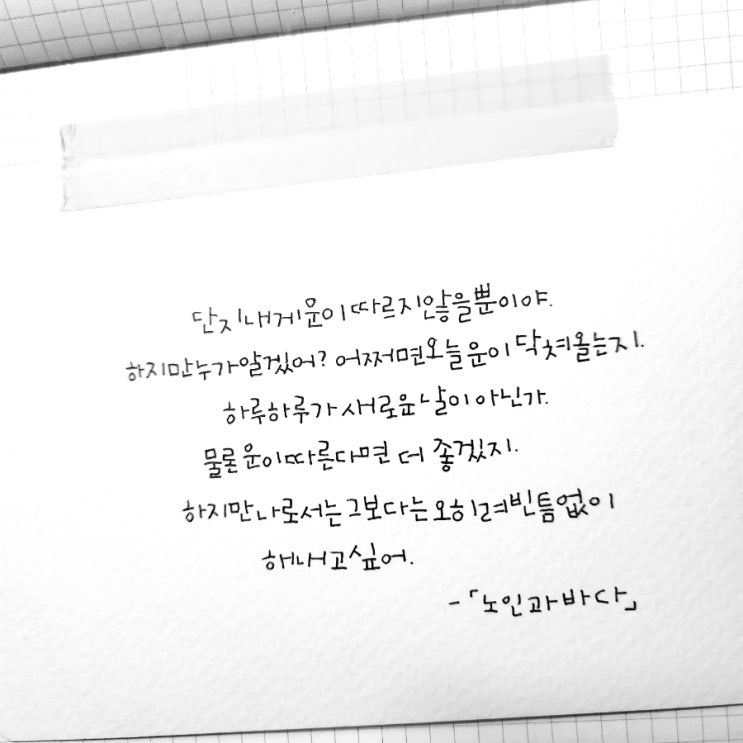 단지 내게 운이 따르지 않을 뿐이야.
하지만 누가 알겠어? 어쩌면 오늘 운이 닥쳐올는지.
하루하루가 새로운 날이 아닌가.
물론 운이 따른다면 더 좋겠지.
하지만 나로서는 그보다는 오히려 빈틈없이
해내고 싶어.
-「노인과 바다」